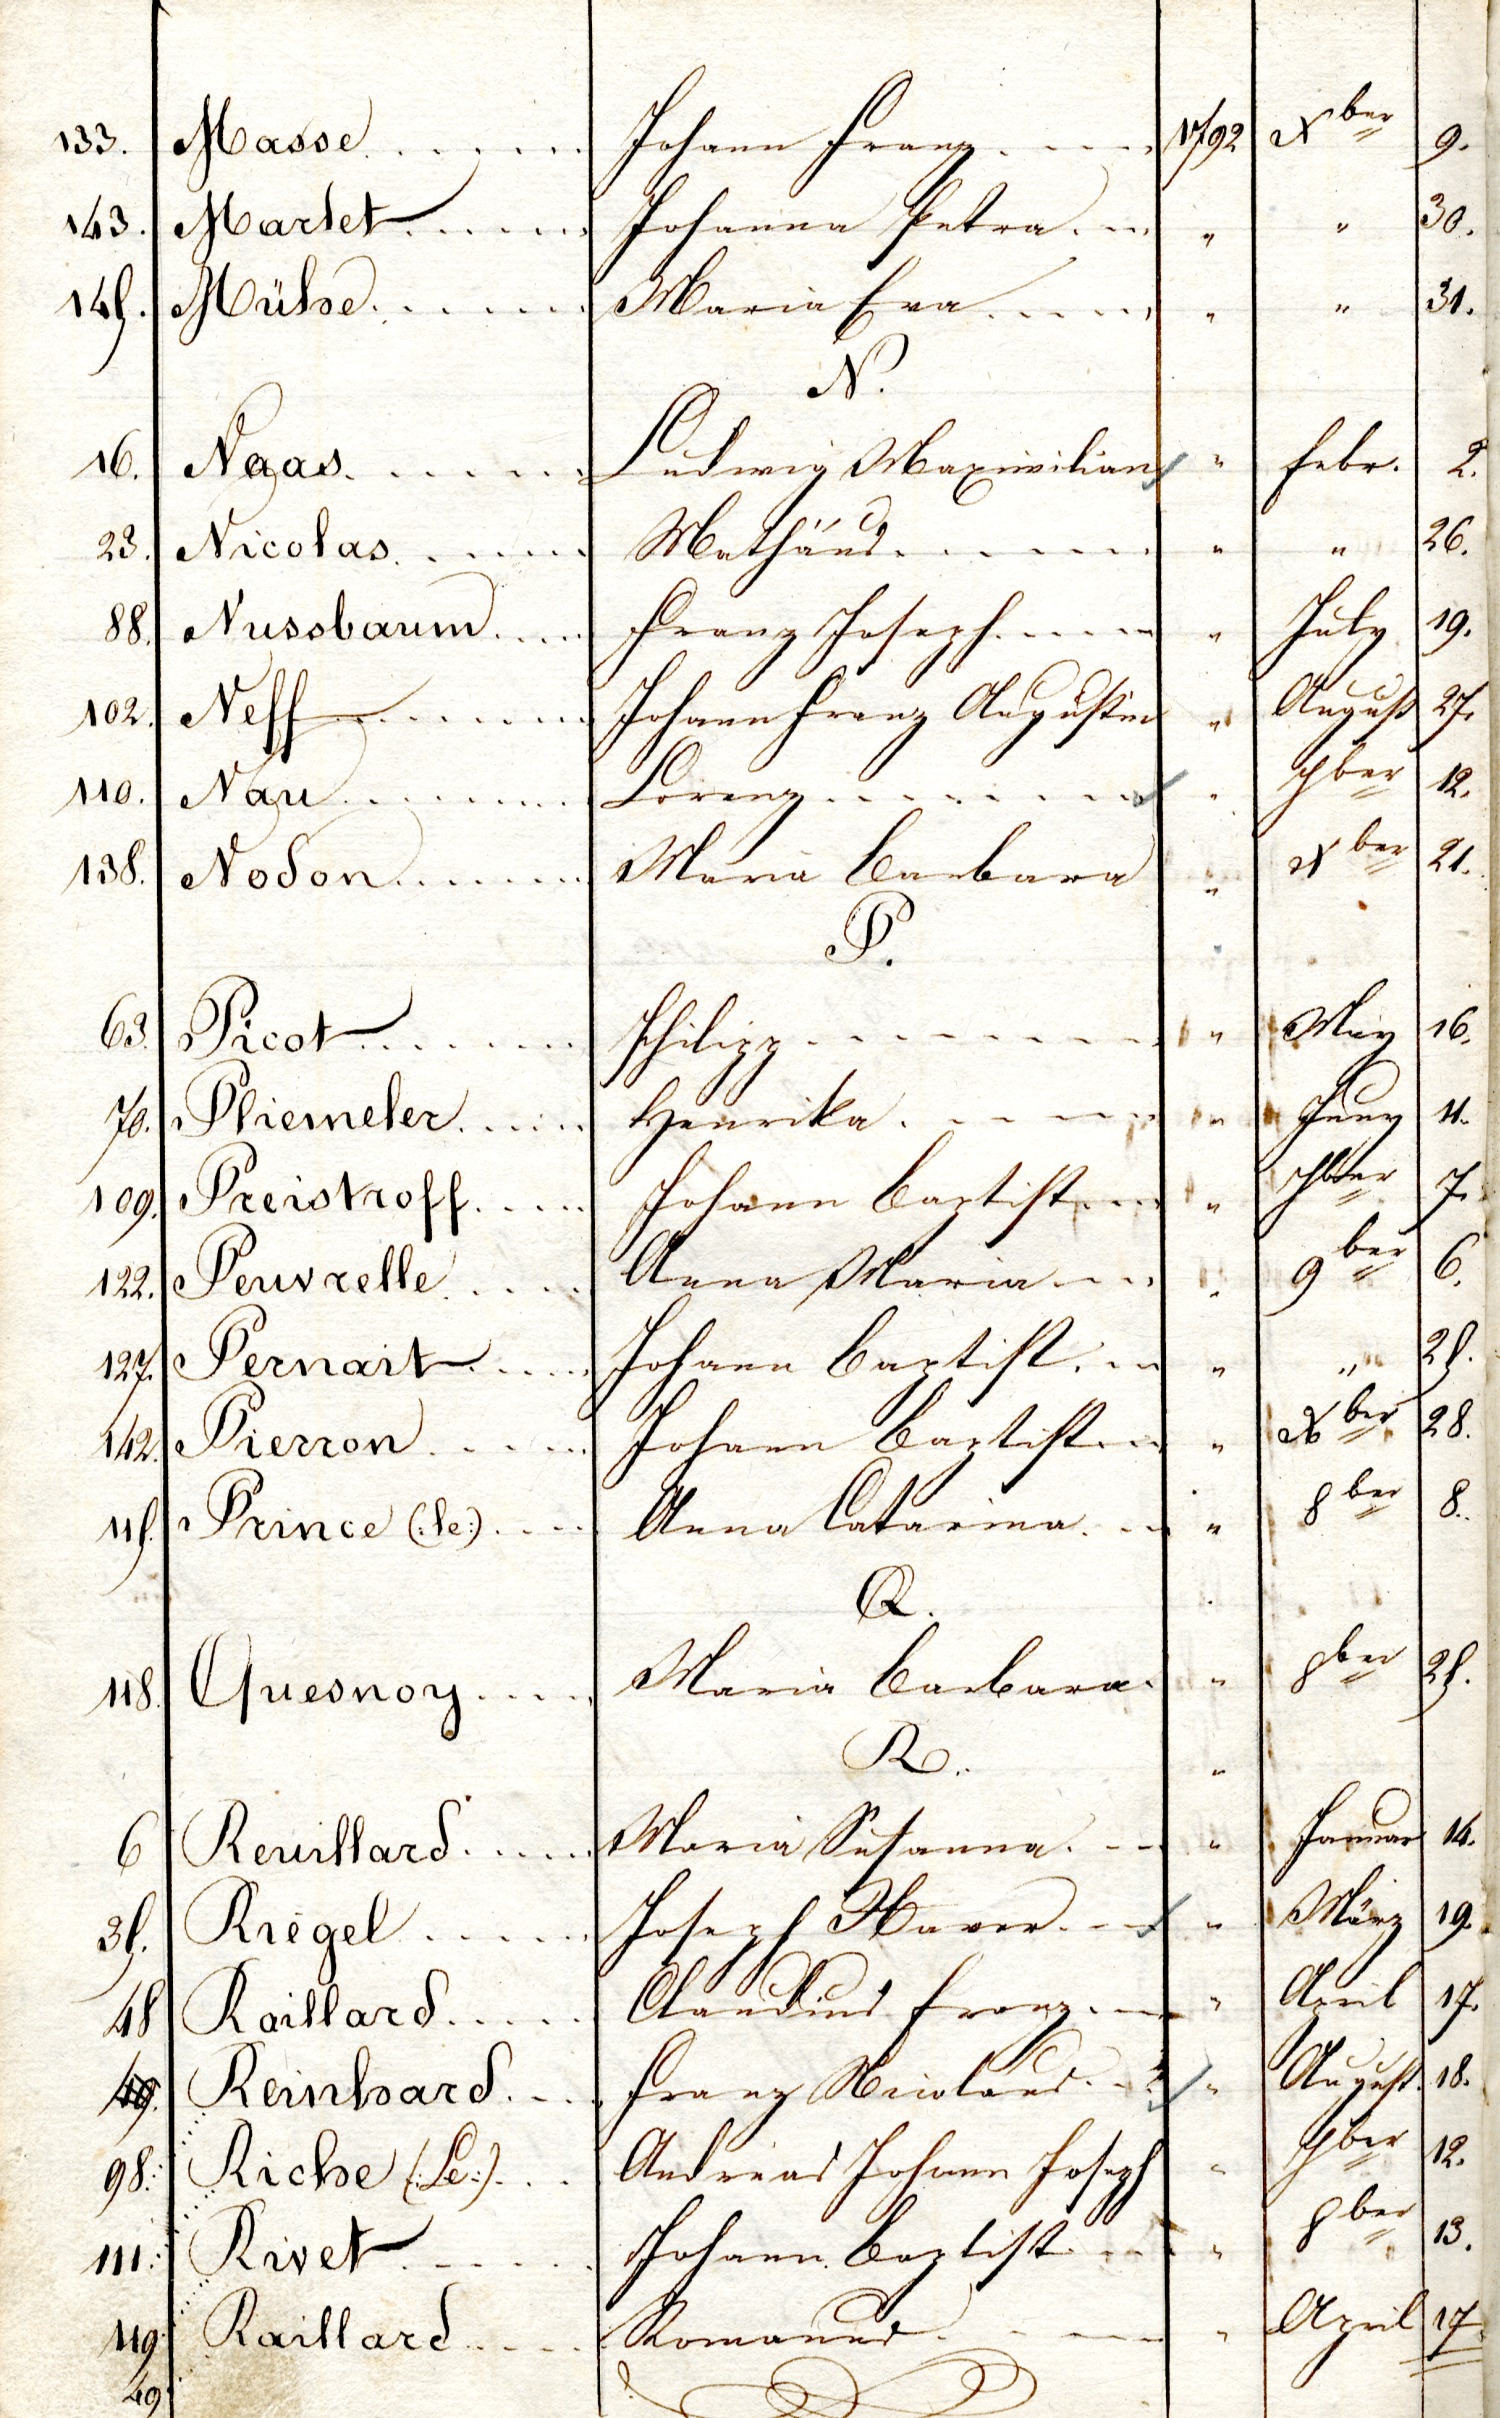 133. Masse Johann Franz 1792 Xber 9.
143. Marlet Johanna Petra " " 30.
145. Mühe Maria Eva " " 31.
N.
16. Naas Ludwig Maximilian " Febr. 2.
23. Nicolas Mathäus " " 26.
88. Nussbaum Franz Joseph " July 19.
102. Neff Johann Franz Augustin " August 27.
110. Nau Lorenz " 7ber 12.
138. Nodon Maria Barbara " Xber 21.
P.
63. Picot Philipp " May 16.
70. Pliemeler Henrika " Juny 11.
109. Preistroff Johann Baptist " 7ber 7.
122. Peuvrelle Anna Maria " 9ber 6.
127. Pernait Johann Baptist " " 25.
142. Pierron Johann Baptist " Xber 28.
115. Prince (:le:) Anna Catarina " 8ber 8.
Q.
118. Quesnoy Maria Barbara " 8ber 25.
R.
6 Reuillard Maria Susanna " Januar 14.
35. Riegel Joseph Xaver " März 19.
48 Raillard Claudius Franz " April 17.
49. Reinhard Franz Nicolaus " August 18.
98. Riche (:Le:) Andreas Johann Joseph " 7ber 12.
111. Rivet Johann Baptist " 8ber 13.
119. Raillard Romanus " April 17
49